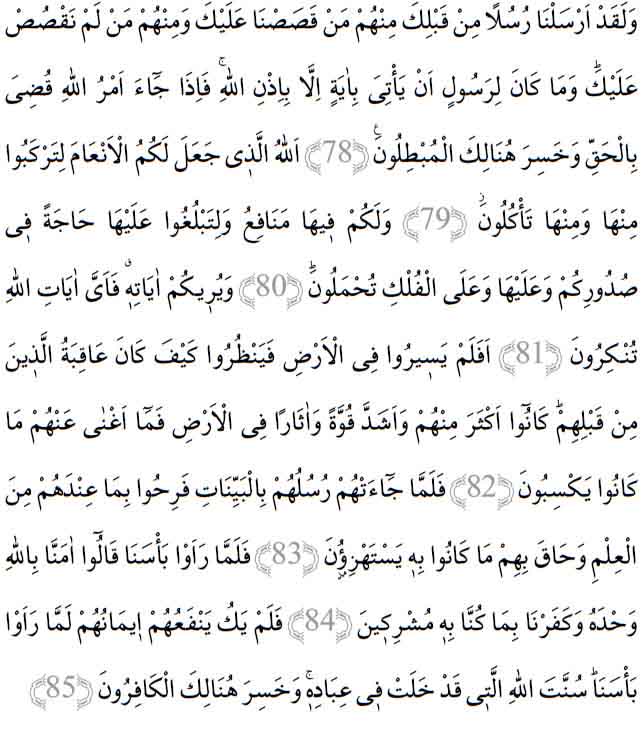 وَلَقَدْ اَرْسَلْنَا رُسُلًا مِنْ قَبْلِكَ مِنْهُمْ مَنْ قَصَصْنَا عَلَيْكَ وَمِنْهُمْ مَنْ لَمْ نَقْصُصْ
عَلَيْكَۜ وَمَا كَانَ لِرَسُولٍ اَنْ يَأْتِىَ بِاٰيَةٍ اِلَّا بِاِذْنِ اللّٰهِۚ فَاِذَا جَٓاءَ اَمْرُ اللّٰهِ قُضِىَ
بِالْحَقِّ وَخَسِرَ هُنَالِكَ الْمُبْطِلُونَ۟ ﴿78﴾ اَللّٰهُ الَّذ۪ى جَعَلَ لَكُمُ الْاَنْعَامَ لِتَرْكَبُوا
مِنْهَا وَمِنْهَا تَأْكُلُونَۘ ﴿79﴾ وَلَكُمْ ف۪يهَا مَنَافِعُ وَلِتَبْلُغُوا عَلَيْهَا حَاجَةً ف۪ى
صُدُورِكُمْ وَعَلَيْهَا وَعَلَى الْفُلْكِ تُحْمَلُونَۜ ﴿80﴾ وَيُر۪يكُمْ اٰيَاتِه۪ۗ فَاَىَّ اٰيَاتِ اللّٰهِ
تُنْكِرُونَ ﴿81﴾ اَفَلَمْ يَس۪يرُوا فِى الْاَرْضِ فَيَنْظُرُوا كَيْفَ كَانَ عَاقِبَةُ الَّذ۪ينَ
مِنْ قَبْلِهِمْۜ كَانُٓوا اَكْثَرَ مِنْهُمْ وَاَشَدَّ قُوَّةً وَاٰثَارًا فِى الْاَرْضِ فَمَٓا اَغْنٰى عَنْهُمْ مَا
كَانُوا يَكْسِبُونَ ﴿82﴾ فَلَمَّا جَٓاءَتْهُمْ رُسُلُهُمْ بِالْبَيِّنَاتِ فَرِحُوا بِمَا عِنْدَهُمْ مِنَ
الْعِلْمِ وَحَاقَ بِهِمْ مَا كَانُوا بِه۪ يَسْتَهْزِؤُ۫نَ ﴿83﴾ فَلَمَّا رَاَوْا بَأْسَنَا قَالُٓوا اٰمَنَّا بِاللّٰهِ
وَحْدَهُ وَكَفَرْنَا بِمَا كُنَّا بِه۪ مُشْرِك۪ينَ ﴿84﴾ فَلَمْ يَكُ يَنْفَعُهُمْ ا۪يمَانُهُمْ لَمَّا رَاَوْا
بَأْسَنَاۜ سُنَّتَ اللّٰهِ الَّت۪ى قَدْ خَلَتْ ف۪ى عِبَادِه۪ۚ وَخَسِرَ هُنَالِكَ الْكَافِرُونَ ﴿85﴾